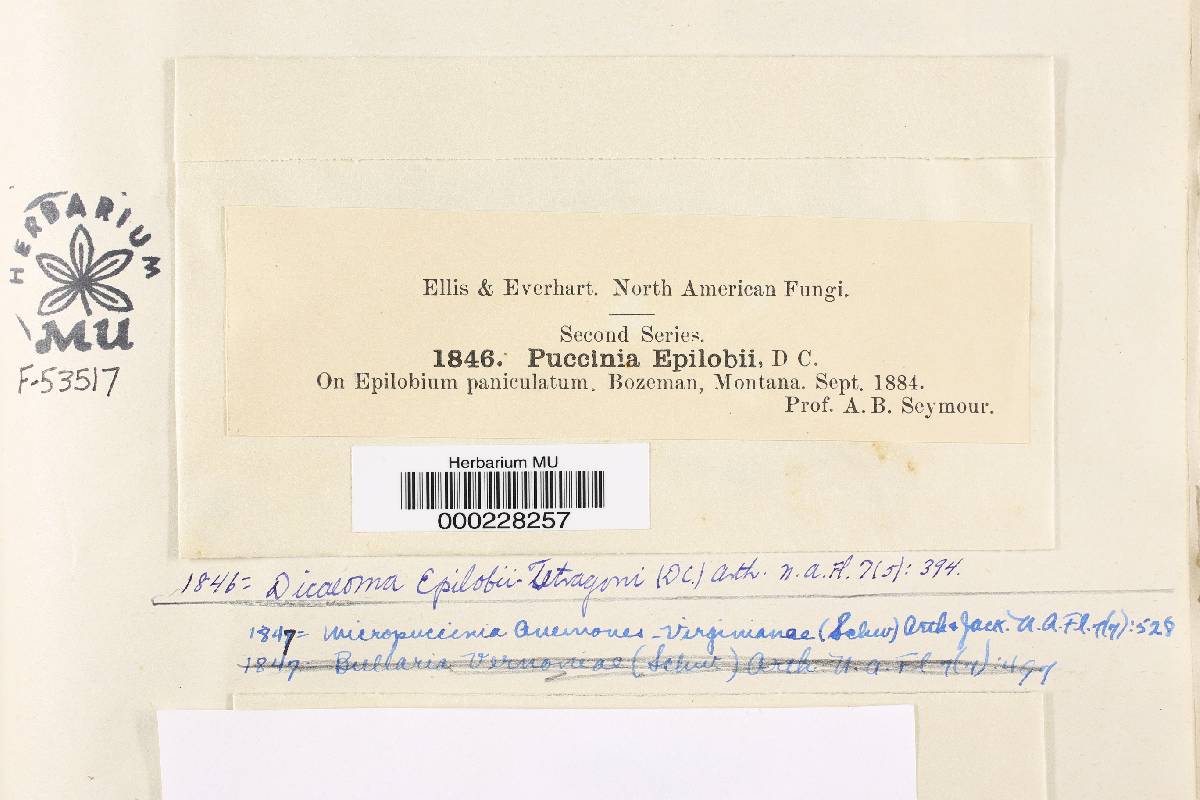 HERBARIUM
MU
F-53517
Ellis & Everhart. North American Fungi.
Second Series.
1846. Puccinia Epilobii, D C.
On Epilobium paniculatum. Bozeman, Montana. Sept. 1884.
Prof. A. B. Seymour.
Herbarium MU
000228257
1846= Dicaeoma Epilobii-Tetragoni (DC) Arth. N.A.Fl. 7(5): 394.
1847= Micropuccinia Anemones-Virginianae (Schw) Arth & Jack. N.A.Fl. 7(7):528
1847= Bullaria Vernoniae (Schw.) Arth. N.A.Fl 7(7):497